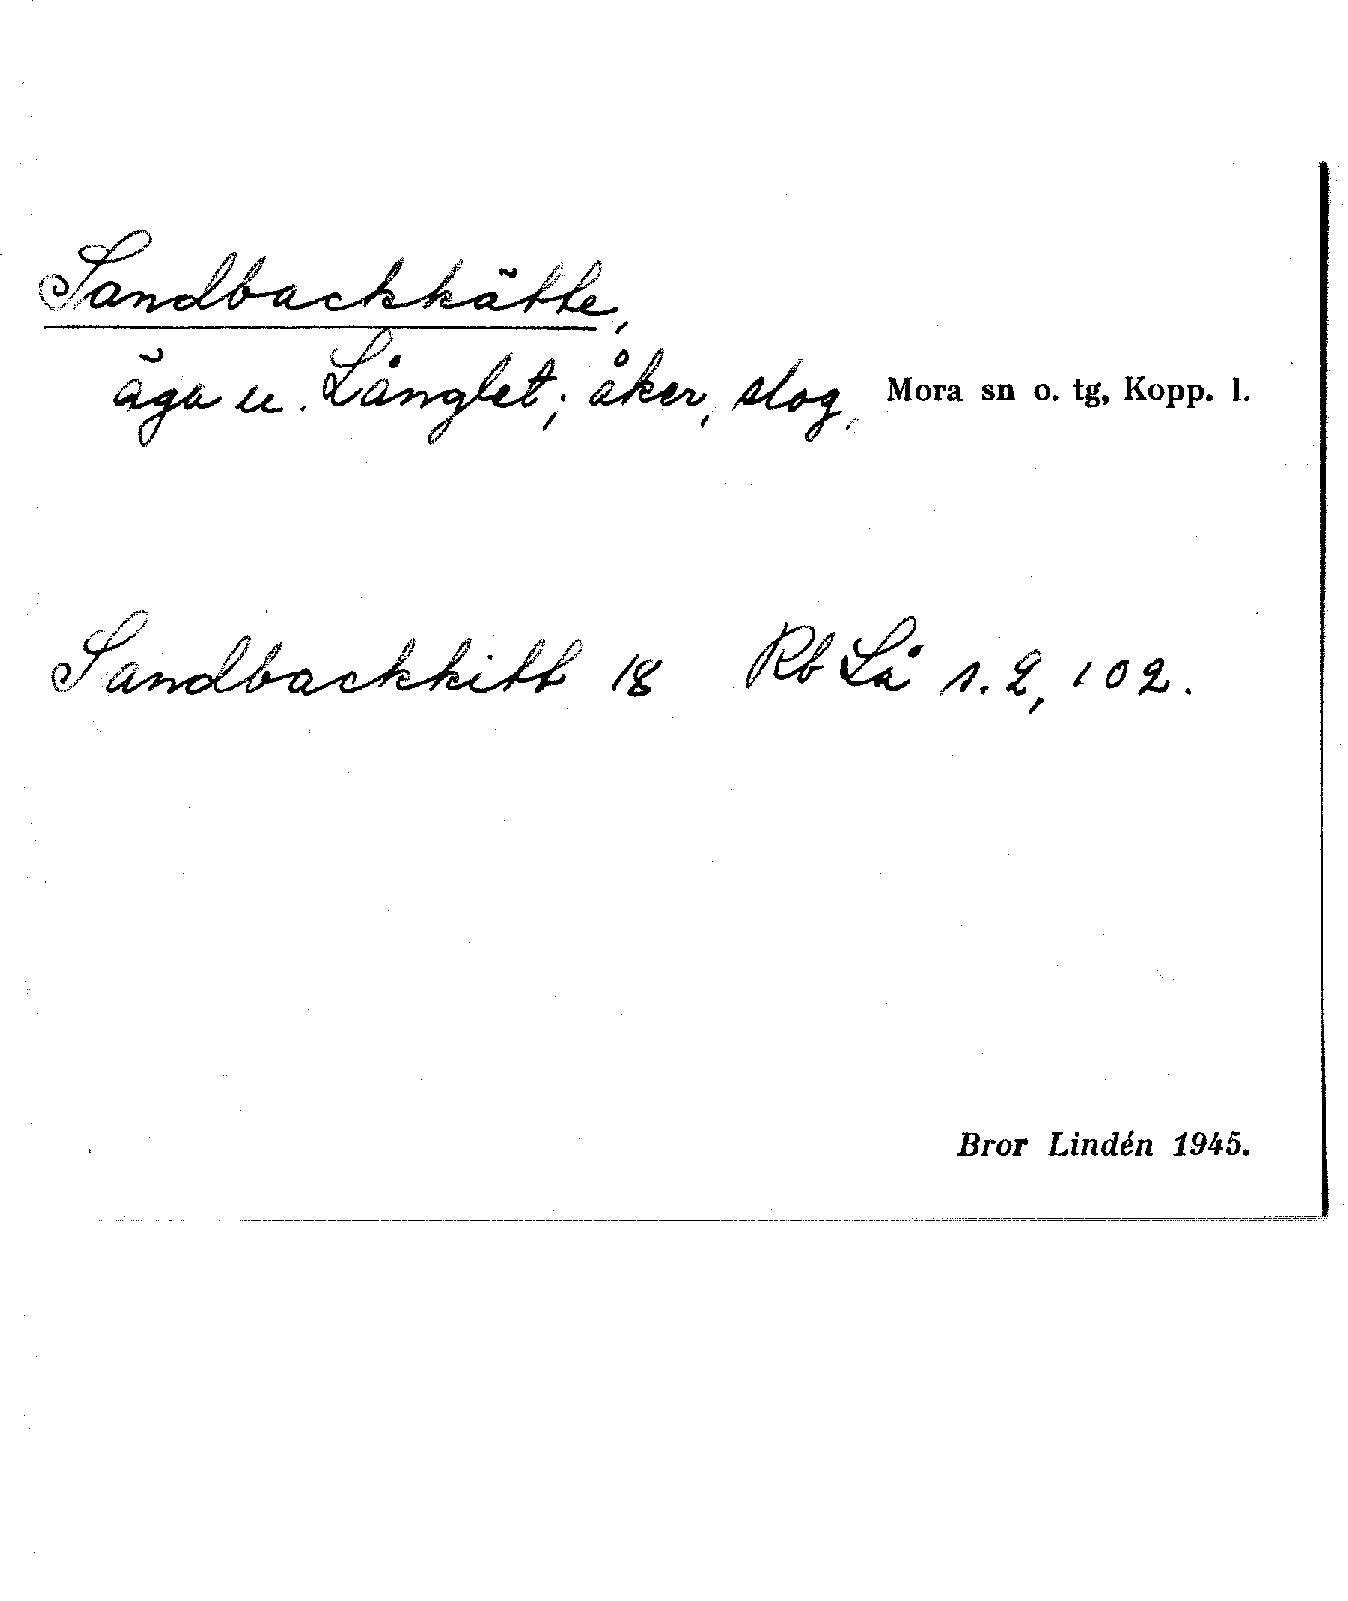 Sandbackkätte,
äga u. Långlet; åker, slog, Mora sn o. tg, Kopp. l.
Sandbackkitt 18 Rb Lå s. 2, 102.
Bror Lindén 1945.